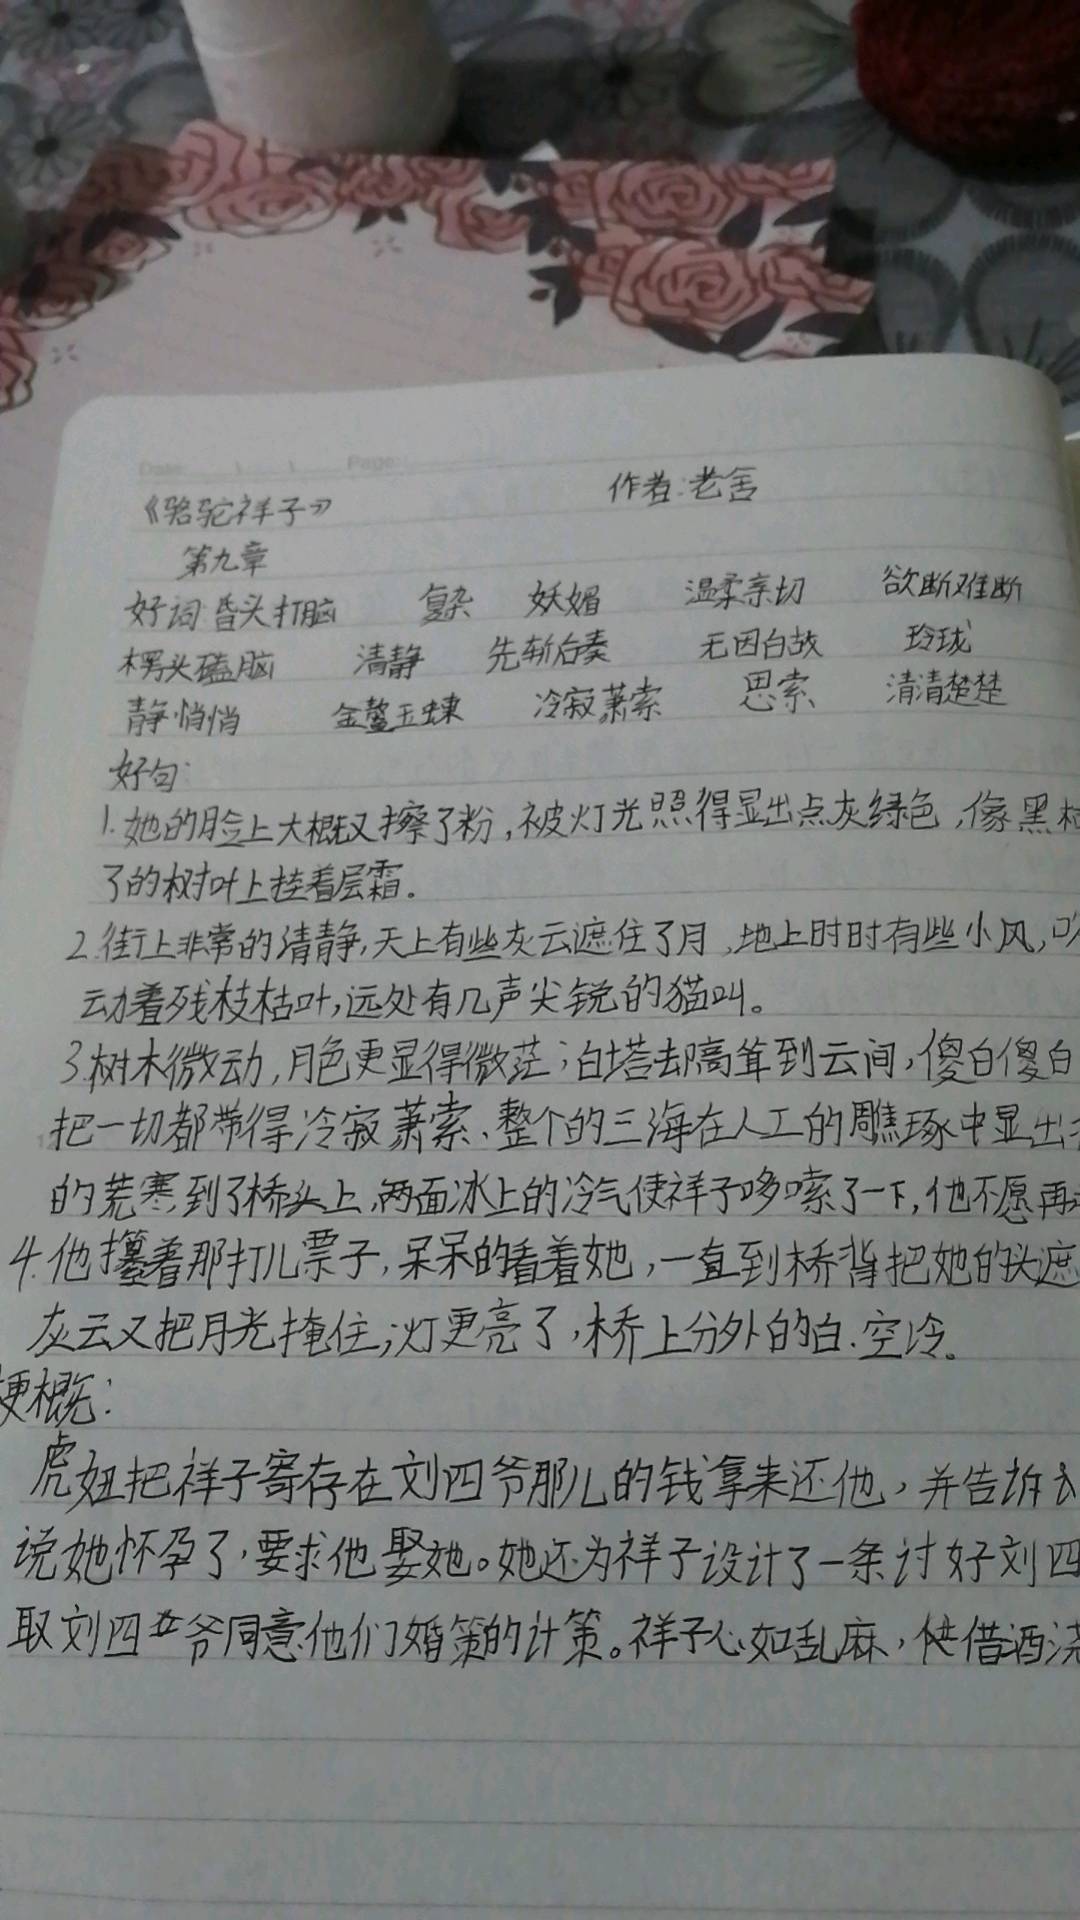 Date: Page:
《骆驼祥子》 作者:老舍
第九章
好词 昏头打脑 复杂 妖媚 温柔亲切 欲断难断
楞头磕脑 清静 先斩后奏 无因白故 玲珑
静悄悄 金鳌玉蝀 冷寂萧索 思索 清清楚楚
好句:
1.她的脸上大概又擦了粉,被灯光照得显出点灰绿色,像黑枯
了的树叶上挂着层霜。
2.街上非常的清静,天上有些灰云遮住了月,地上时时有些小风,吹
动着残枝枯叶,远处有几声尖锐的猫叫。
3.树木微动,月色更显得微茫;白塔却高耸到云间,傻白傻白
把一切都带得冷寂萧索、整个的三海在人工的雕琢中显出
的荒寒,到了桥头上,两面冰上的冷气使祥子哆嗦了一下,他不愿再
4.他攥着那打儿票子,呆呆的看着她,一直到桥背把她的头遮
灰云又把月光掩住;灯更亮了,桥上分外的白.空冷。
梗概:
虎妞把祥子寄存在刘四爷那儿的钱拿来还他,并告诉
说她怀孕了,要求他娶她。她还为祥子设计了一条讨好刘四
取刘四爷同意他们婚策的计策。祥子心如乱麻,借酒浇